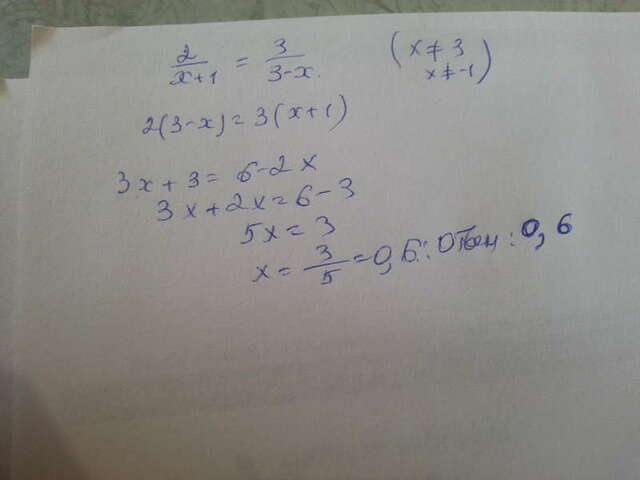 2/(x+1) = 3/(3-x). (x≠3
x≠-1)
2(3-x)=3(x+1)
3x+3=6-2x
3x+2x=6-3
5x=3
x=3/5=0,6. Ответ: 0,6